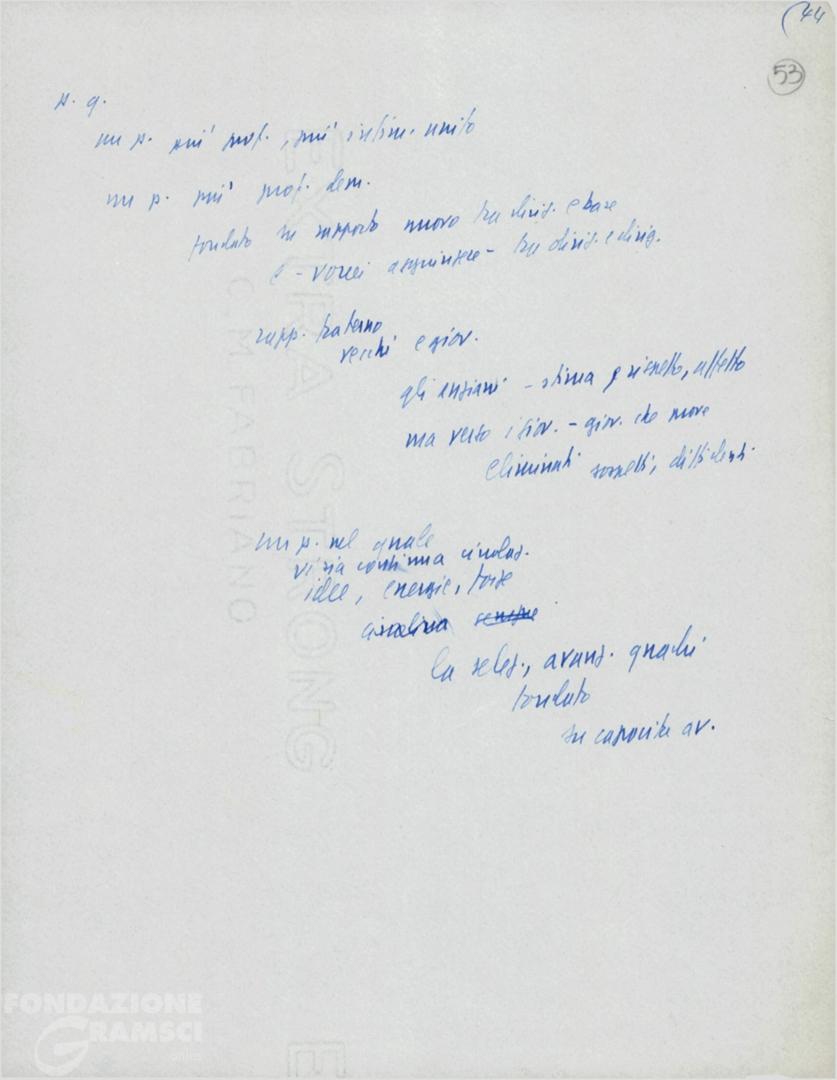 (44
53
p. q.
un p. più prof., più intim. unito
un p. più prof. dem.
fondato su rapporto nuovo tra dirig. e base
e - vorrei aggiungere - tra dirig. e dirig.
rapp. fraterno
vecchi e giov.
gli anziani - stima e rispetto, affetto
ma verso i giov. - giov. che
eliminati sospetti, diffidenti
un p. nel quale
vi sia continua circolaz.
idee, energie, forze
la selez., avanz. quadri
fondato
su capacità av.
EXTRA STRONG
C.M. FABRIANO
E
FONDAZIONE
GRAMSCI
onlus